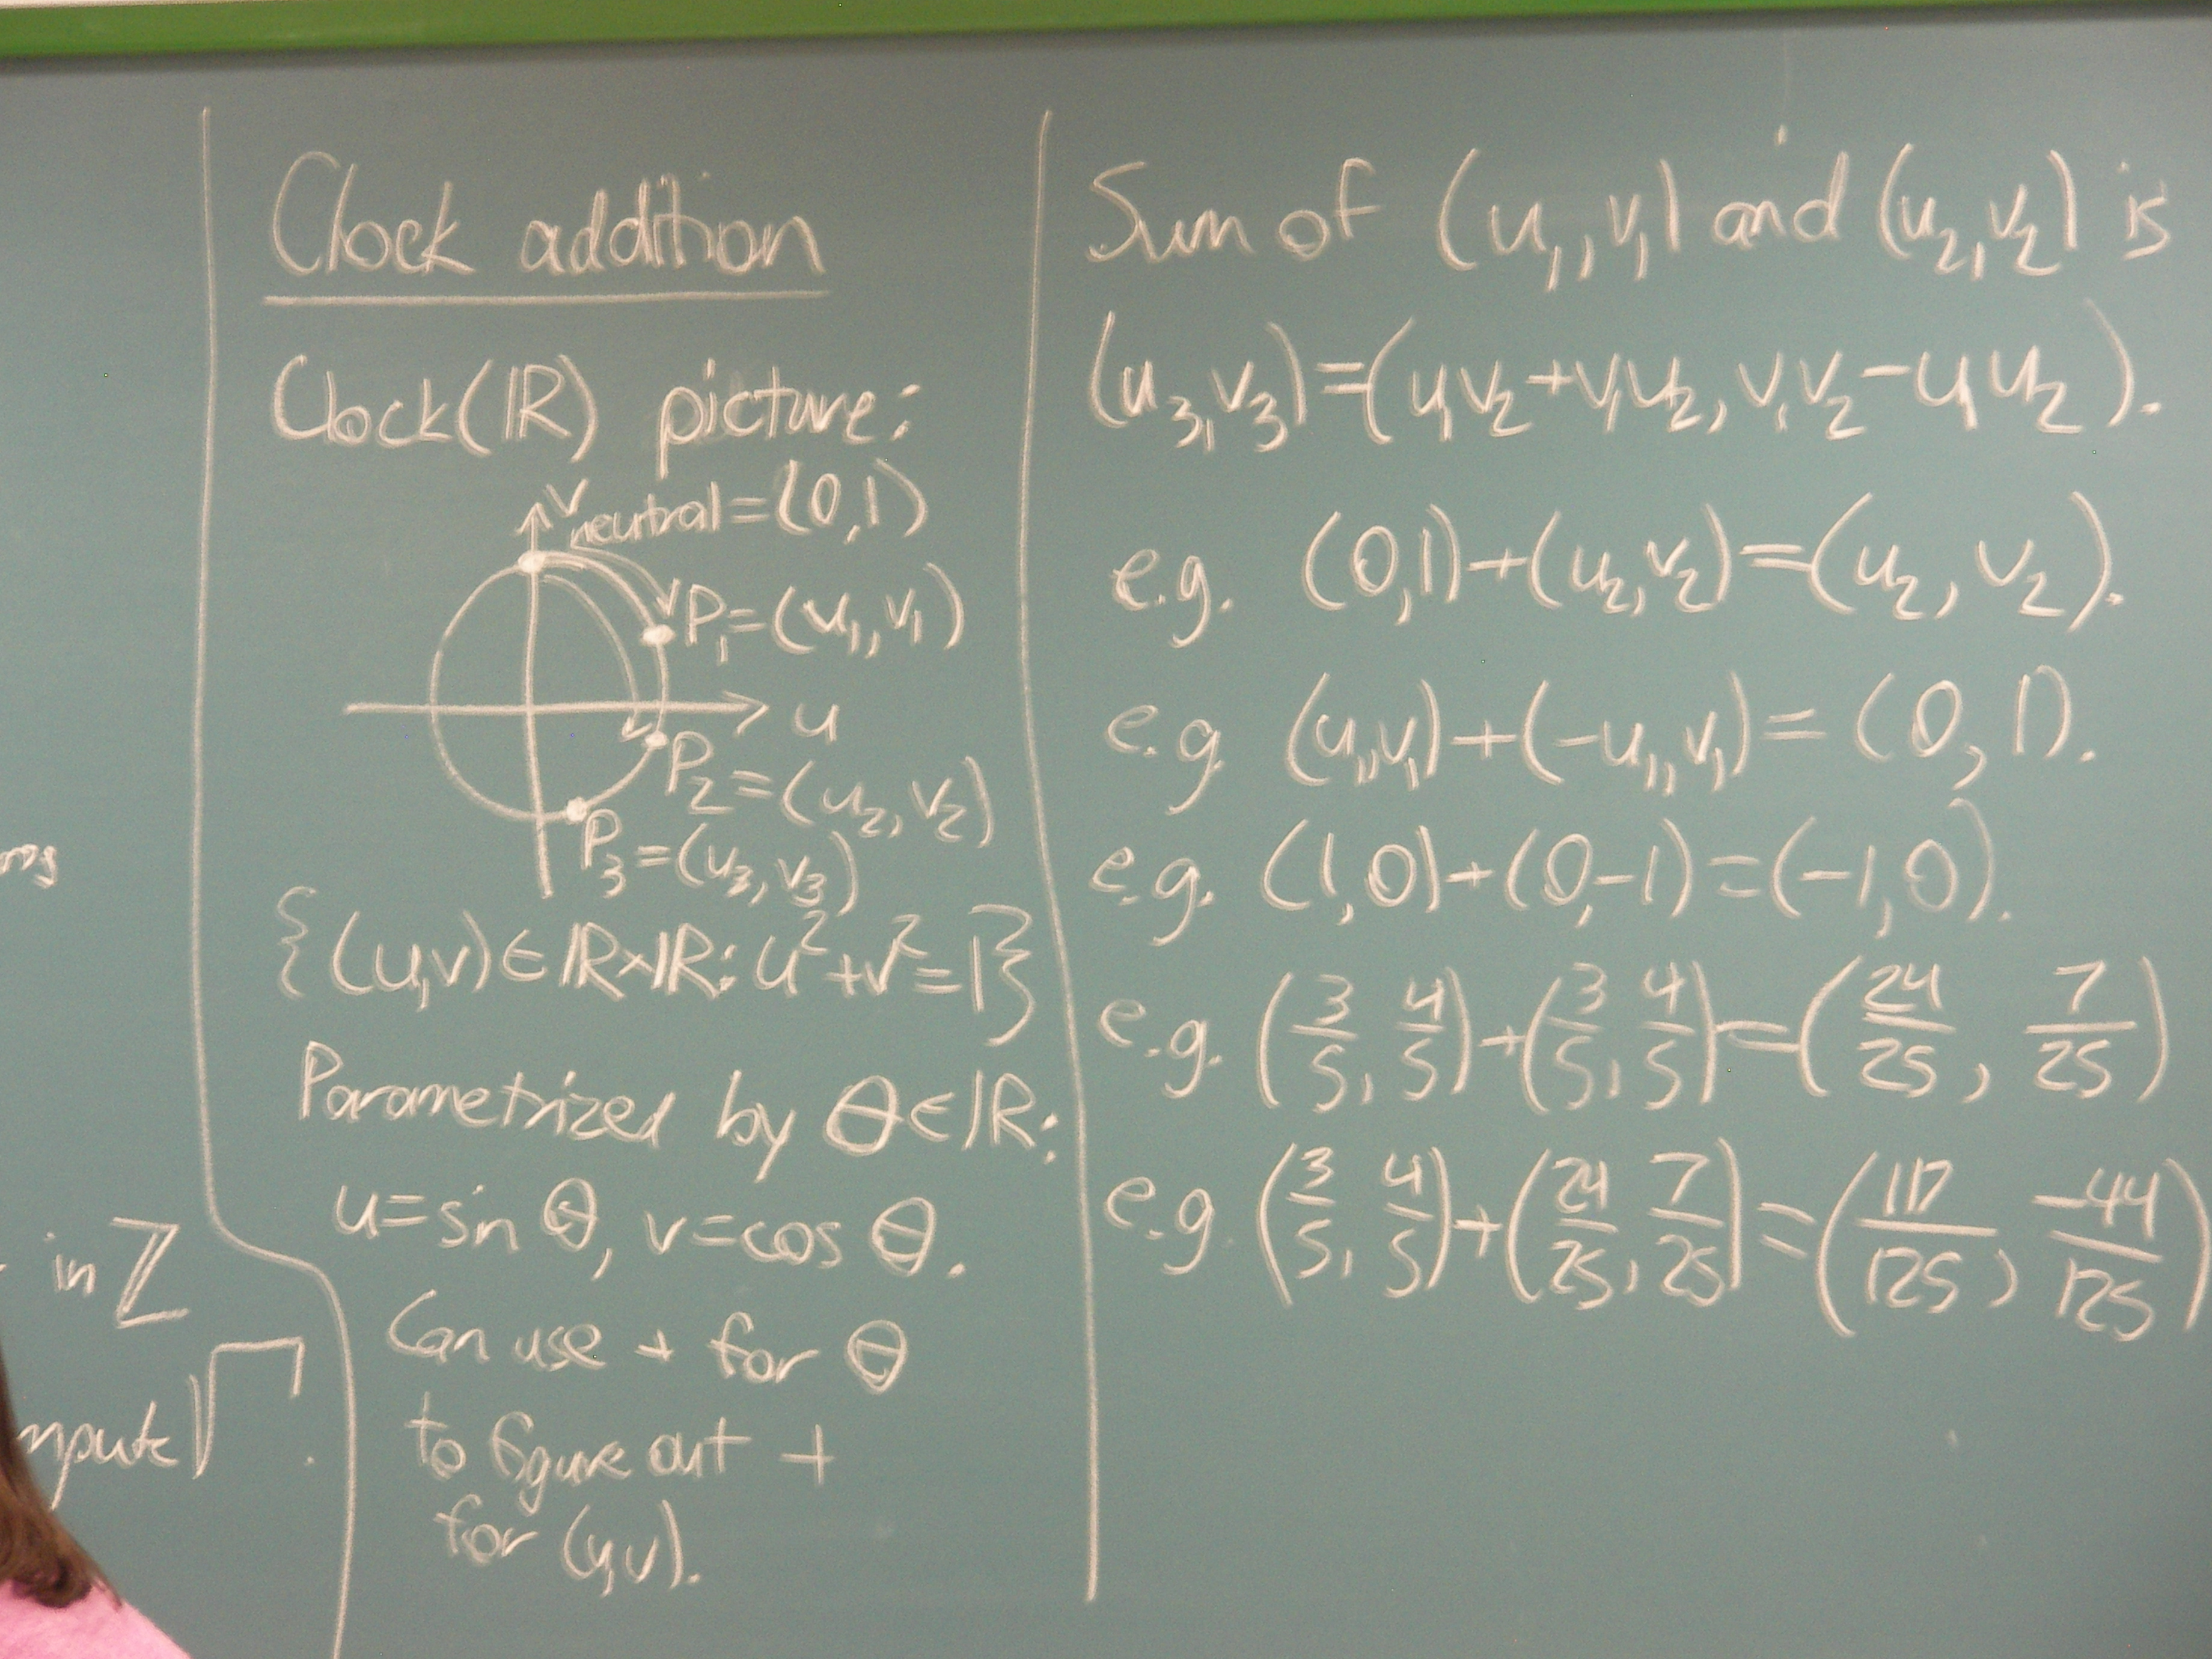 Clock addition
Clock(ℝ) picture:
v
neutral=(0,1)
P₁=(u₁,v₁)
u
P₂=(u₂,v₂)
P₃=(u₃,v₃)
{(u,v)∈ℝ×ℝ:u²+v²=1}
Parametrized by θ∈ℝ:
u=sin θ, v=cos θ.
Can use + for θ
to figure out +
for (u,v).
Sum of (u₁,v₁) and (u₂,v₂) is
(u₃,v₃)=(u₁v₂+v₁u₂,v₁v₂-u₁u₂).
e.g. (0,1)+(u₂,v₂)=(u₂,v₂).
e.g. (u₁,v₁)+(-u₁,v₁)=(0,1).
e.g. (1,0)+(0,-1)=(-1,0).
e.g. (3/5,4/5)+(3/5,4/5)=(24/25,7/25)
e.g. (3/5,4/5)+(24/25,7/25)=(117/125,-44/125)
in ℤ
√ .